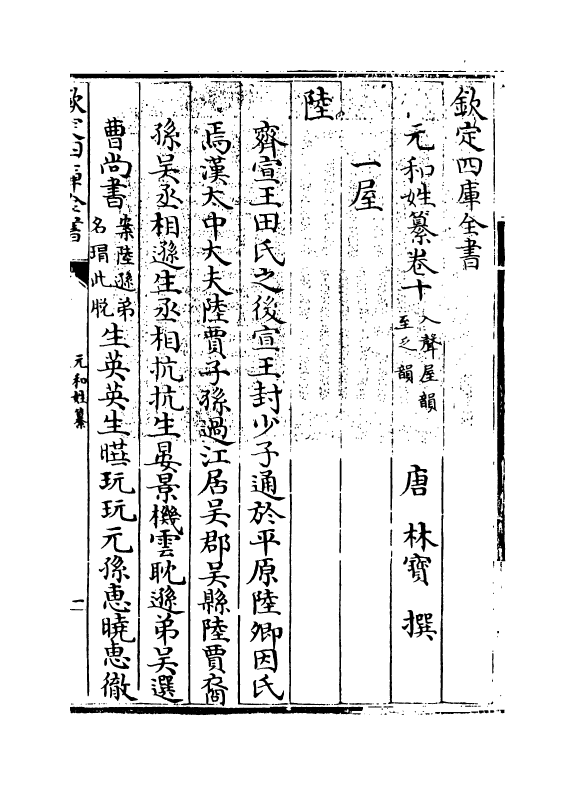 欽定四庫全書
元和姓纂卷十 入聲屋韻至乏韻 唐 林寶 撰
一屋
陸
齊宣王田氏之後宣王封少子通於平原陸鄉因氏
焉漢大中大夫陸賈子孫過江居吳郡吳縣陸賈裔
孫吳丞相遜生丞相抗抗生晏景機雲耽遜弟吳選
曹尚書 案陸遜弟名瑁此脫 生英英生曄玩玩元孫惠曉惠徹
欽定四庫全書
元和姓纂